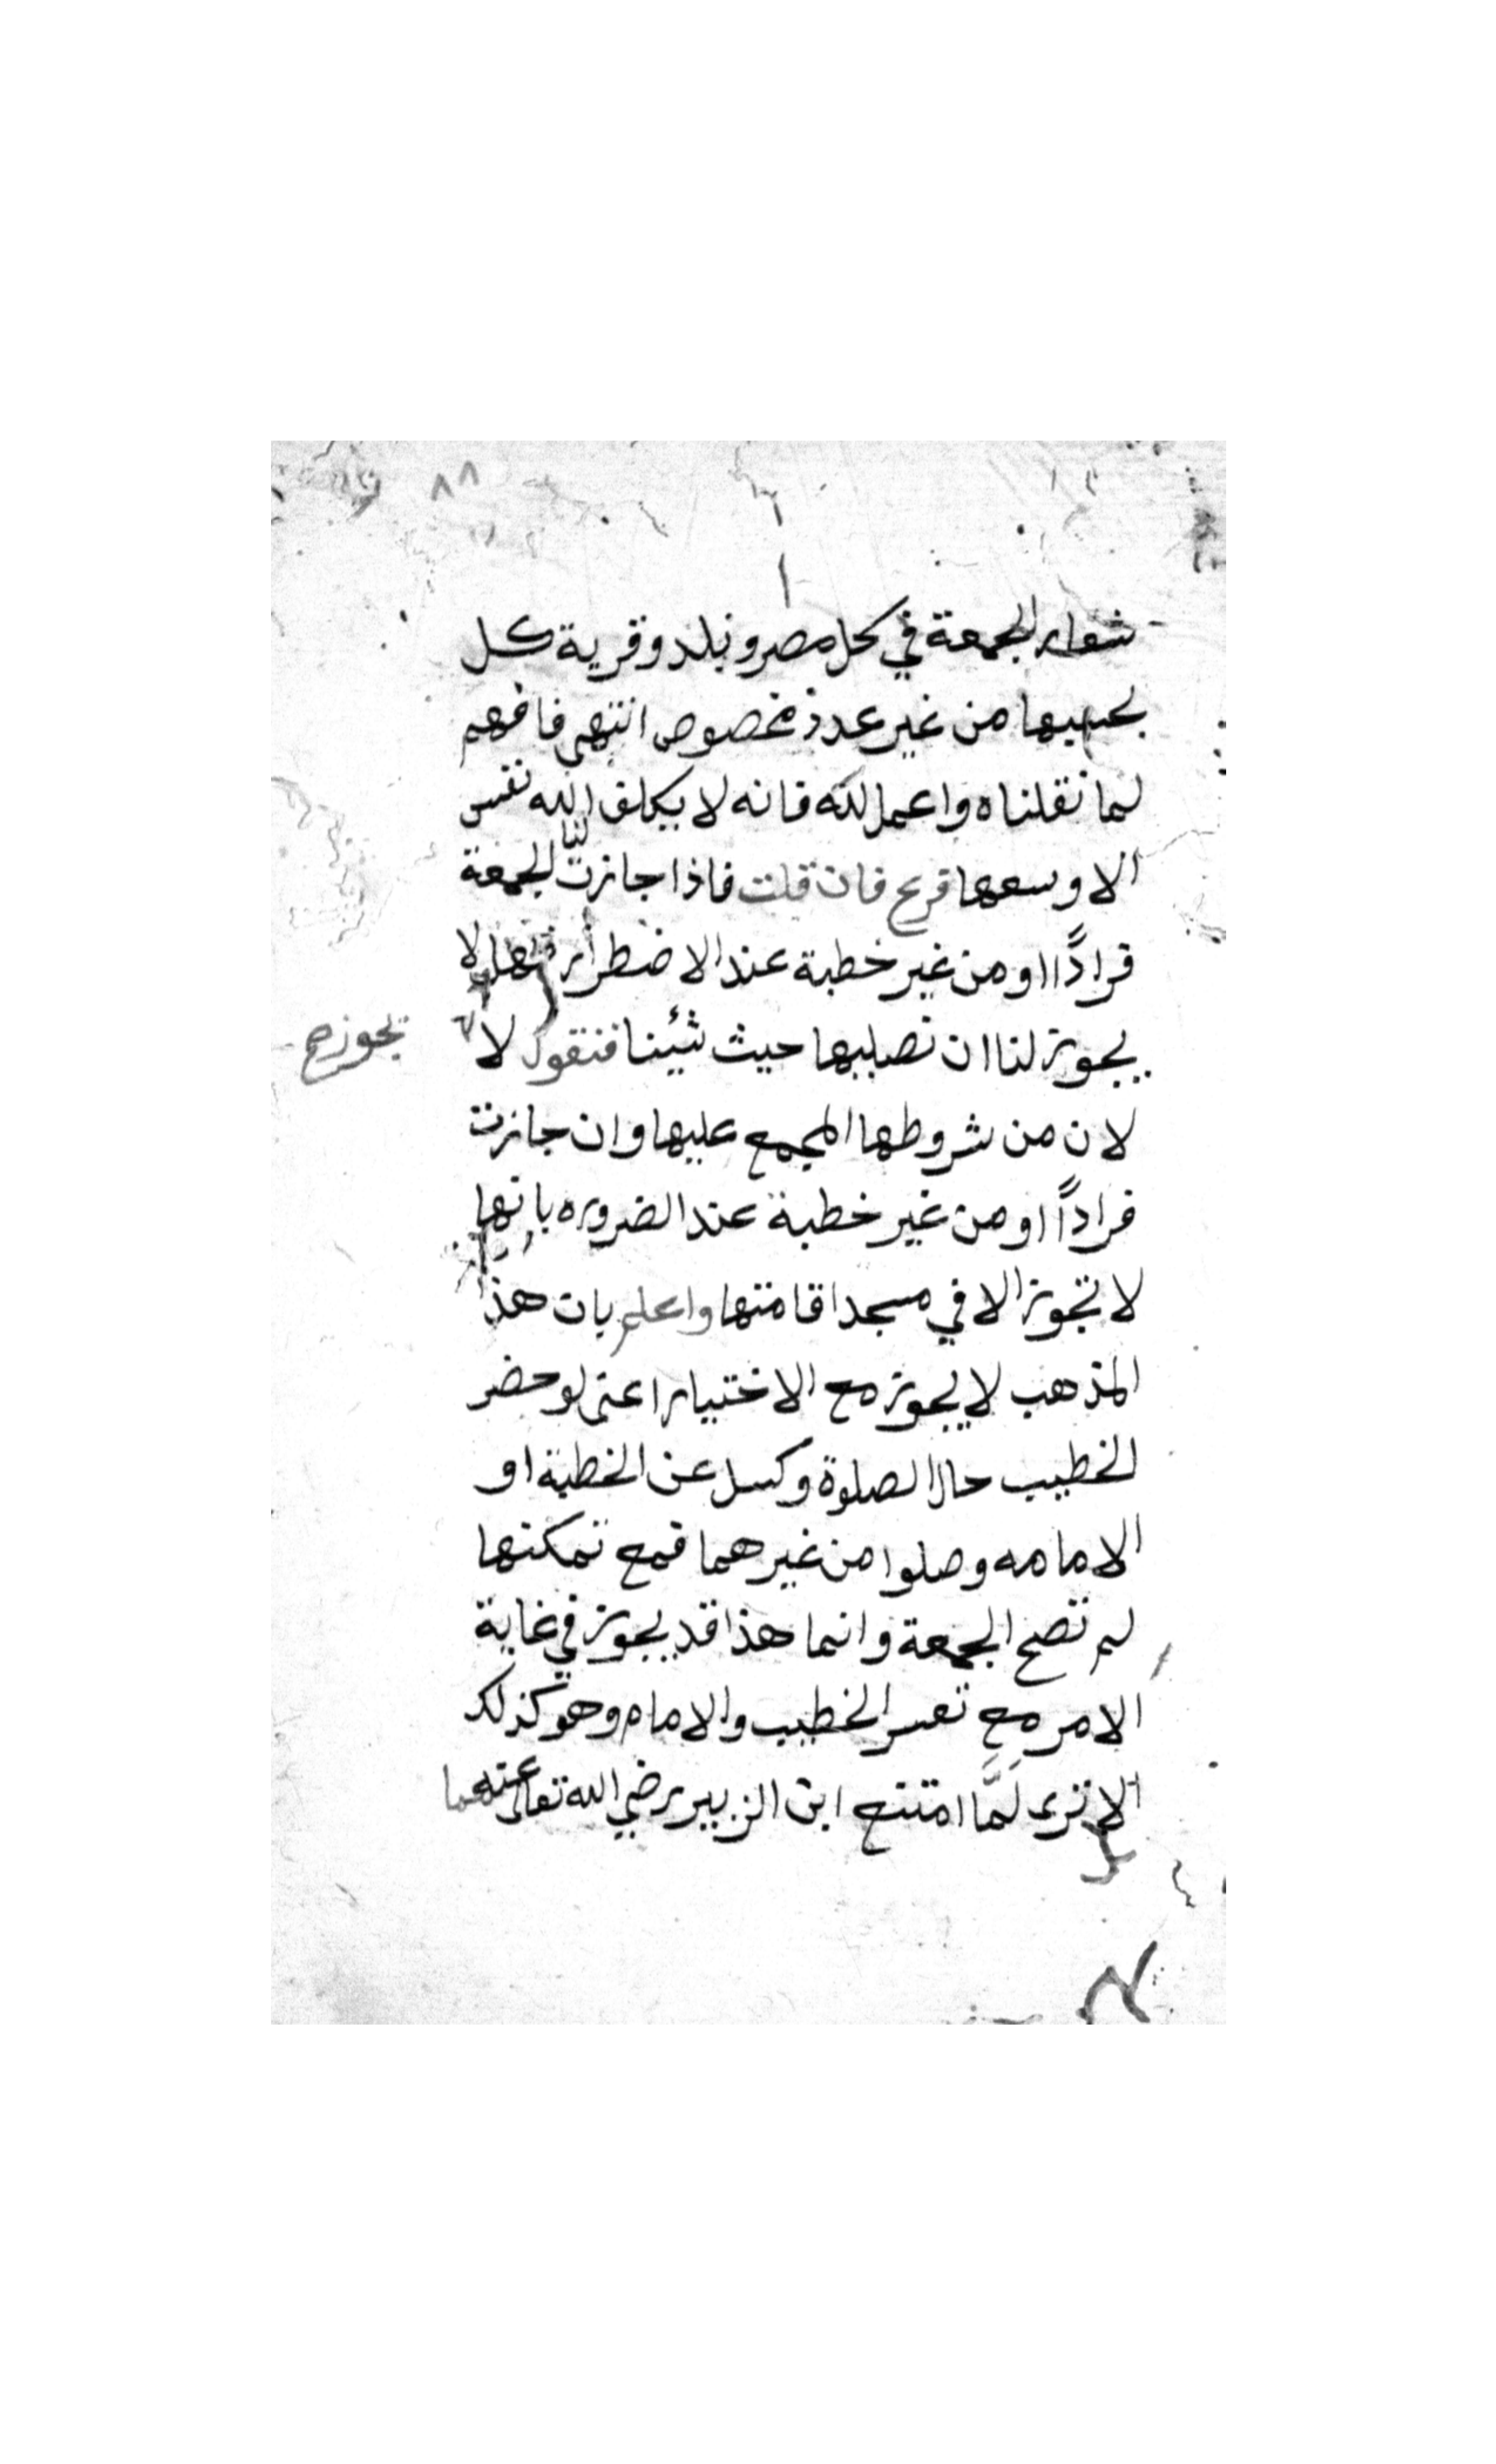 ٨٨
شعار الجمعة في كل مصر وبلد وقرية كل
بحسبها من غير عدد مخصوص انتهى فافهم
لما نقلناه واعمل لله فانه لا يكلف الله نفس
الا وسعها فرع فان قلت فاذا جازت لنا الجمعة
فرادًا او من غير خطبة عند الاضطرار فهل لا
يجوز لنا ان نصليها حيث شئنا فنقول لا
يجوز صح
لان من شروطها المجمع عليها وان جازت
فرادًا او من غير خطبة عند الضروره بانها
لا تجوز الا في مسجد اقامتها واعلم بان هذا
المذهب لا يجوز مع الاختيار اعنى لو حضر
الخطيب حال الصلوة وكسل عن الخطبة او
الامامه وصلوا من غيرهما فمع تمكنها
لم تصح الجمعة وانما هذا قد يجوز في غاية
الامر مع تعسر الخطيب والامام وهو كذلك
الا ترى لَمَّا امتنع ابن الزبير رضي الله تعالى عنهما